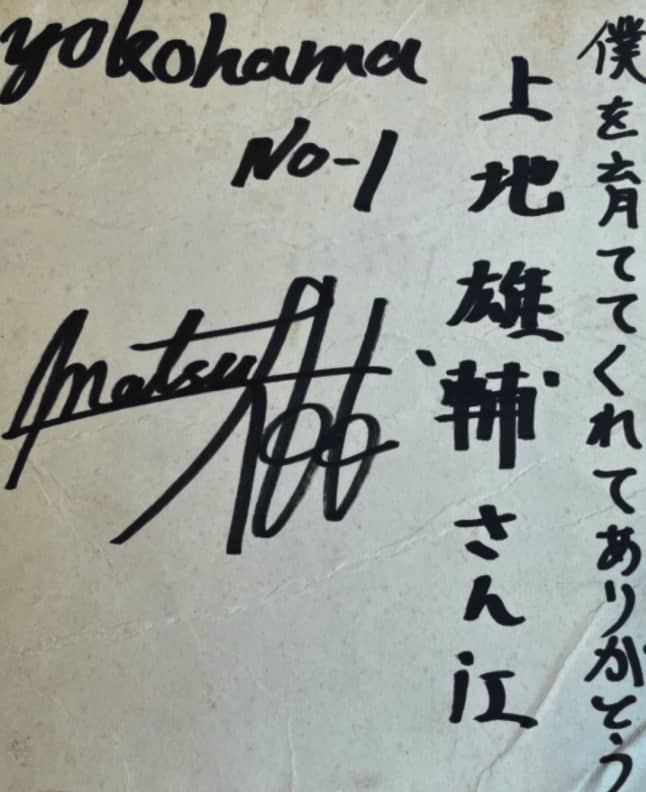 僕を育ててくれてありがとう
上地雄輔さん江
yokohama
No-1